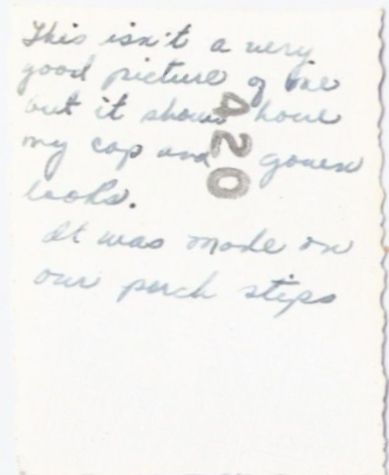 This isn't a very
good picture of me
but it shows how
my cap and gown
looks.
It was made on
our porch steps
420